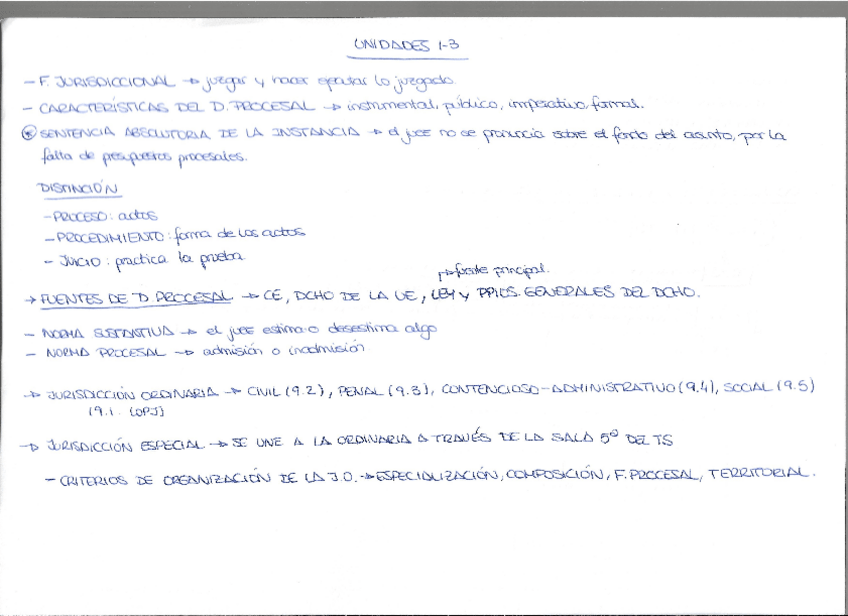 UNIDADES 1-3
- F. JURISDICCIONAL → juzgar y hacer ejecutar lo juzgado.
- CARACTERÍSTICAS DEL D. PROCESAL → instrumental, público, imperativo, formal.
* SENTENCIA ABSOLUTORIA DE LA INSTANCIA → el juez no se pronuncia sobre el fondo del asunto, por la
falta de presupuestos procesales.
DISTINCIÓN
- PROCESO: actos
- PROCEDIMIENTO: forma de los actos
- JUICIO: practica la prueba
→ fuente principal.
→ FUENTES DE D. PROCESAL → CE, DCHO DE LA UE, LEY y PPIOS. GENERALES DEL DCHO.
- NORMA SUSTANTIVA → el juez estima o desestima algo
- NORMA PROCESAL → admisión o inadmisión
→ JURISDICCIÓN ORDINARIA → CIVIL (9.2), PENAL (9.3), CONTENCIOSO-ADMINISTRATIVO (9.4), SOCIAL (9.5)
(9.1. LOPJ)
→ JURISDICCIÓN ESPECIAL → SE UNE A LA ORDINARIA A TRAVÉS DE LA SALA 5ª DEL TS
- CRITERIOS DE ORGANIZACIÓN DE LA J.O. → ESPECIALIZACIÓN, COMPOSICIÓN, F. PROCESAL, TERRITORIAL.